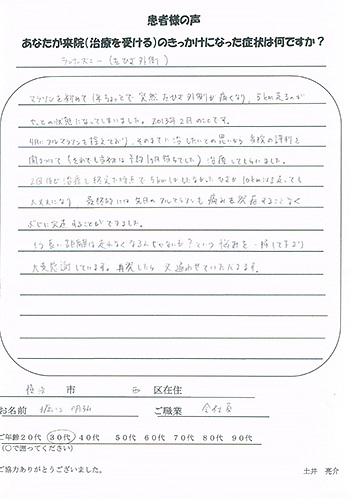 患者様の声
あなたが来院(治療を受ける)のきっかけになった症状は何ですか？
ランナーズニー(左ひざ外側)
マラソンを初めて1年ちょっとで突然左ひざ外側が痛くなり、5km走るのが
やっとの状態になってしまいました。2013年2月のことです。
4月にフルマラソンを控えており、それまでに治したいとの思いから当院の評判を
聞きつけて(それでも当初は予約1ヶ月待ちでした)治療してもらいました。
2回ほど治療を終えた時点で5kmしかもたなかったひざが10kmは走っても
大丈夫になり、最終的には先日のフルマラソンも痛みを発症することなく
ぶじに完走することができました。
もう長い距離は走れなくなるんちゃうか？という悩みを一掃してもらい
大変感謝しています。再発したら又通わせていただきます。
市 西 区在住
お名前 ご職業 会社員
ご年齢20代 30代 40代 50代 60代 70代 80代 90代
(○で囲ってください)
ご協力ありがとうございました。 土井 亮介